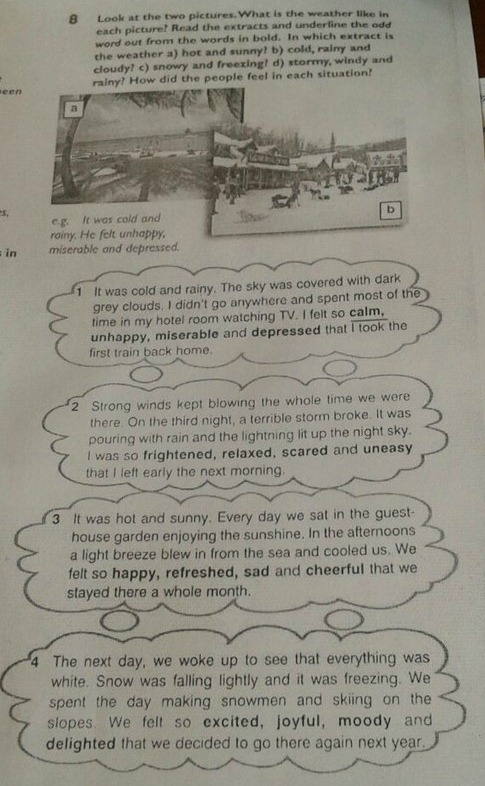 8 Look at the two pictures. What is the weather like in
each picture? Read the extracts and underline the odd
word out from the words in bold. In which extract is
the weather a) hot and sunny? b) cold, rainy and
cloudy? c) snowy and freezing? d) stormy, windy and
rainy? How did the people feel in each situation?
een
a
b
es,
in
e.g. It was cold and
rainy. He felt unhappy,
miserable and depressed.
1 It was cold and rainy. The sky was covered with dark
grey clouds. I didn't go anywhere and spent most of the
time in my hotel room watching TV. I felt so calm,
unhappy, miserable and depressed that I took the
first train back home.
2 Strong winds kept blowing the whole time we were
there. On the third night, a terrible storm broke. It was
pouring with rain and the lightning lit up the night sky.
I was so frightened, relaxed, scared and uneasy
that I left early the next morning.
3 It was hot and sunny. Every day we sat in the guest-
house garden enjoying the sunshine. In the afternoons
a light breeze blew in from the sea and cooled us. We
felt so happy, refreshed, sad and cheerful that we
stayed there a whole month.
4 The next day, we woke up to see that everything was
white. Snow was falling lightly and it was freezing. We
spent the day making snowmen and skiing on the
slopes. We felt so excited, joyful, moody and
delighted that we decided to go there again next year.